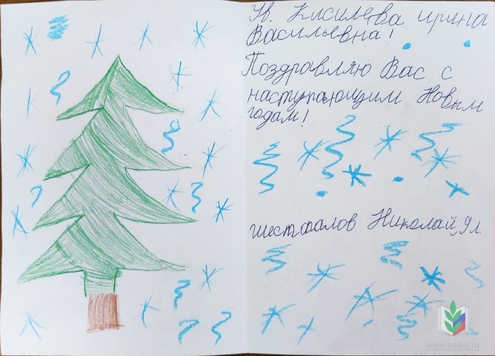 Ув. Кисилёва ирина
Васильевна!
Поздравляю Вас с
наступающим Новым
годам!
шестопалов Николай, 9л.
www.eseur.ru